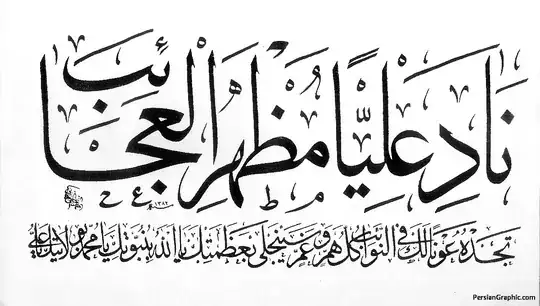 نَادِ عَلِيًّا مَظْهَرَ الْعَجَائِبَ
تجده عونا لك في النوائب كل هم و غم سينجلي بعظمتك يا الله بنبوتك يا محمد بولايتك يا علي
١٣٨٢
PersianGraphic.com